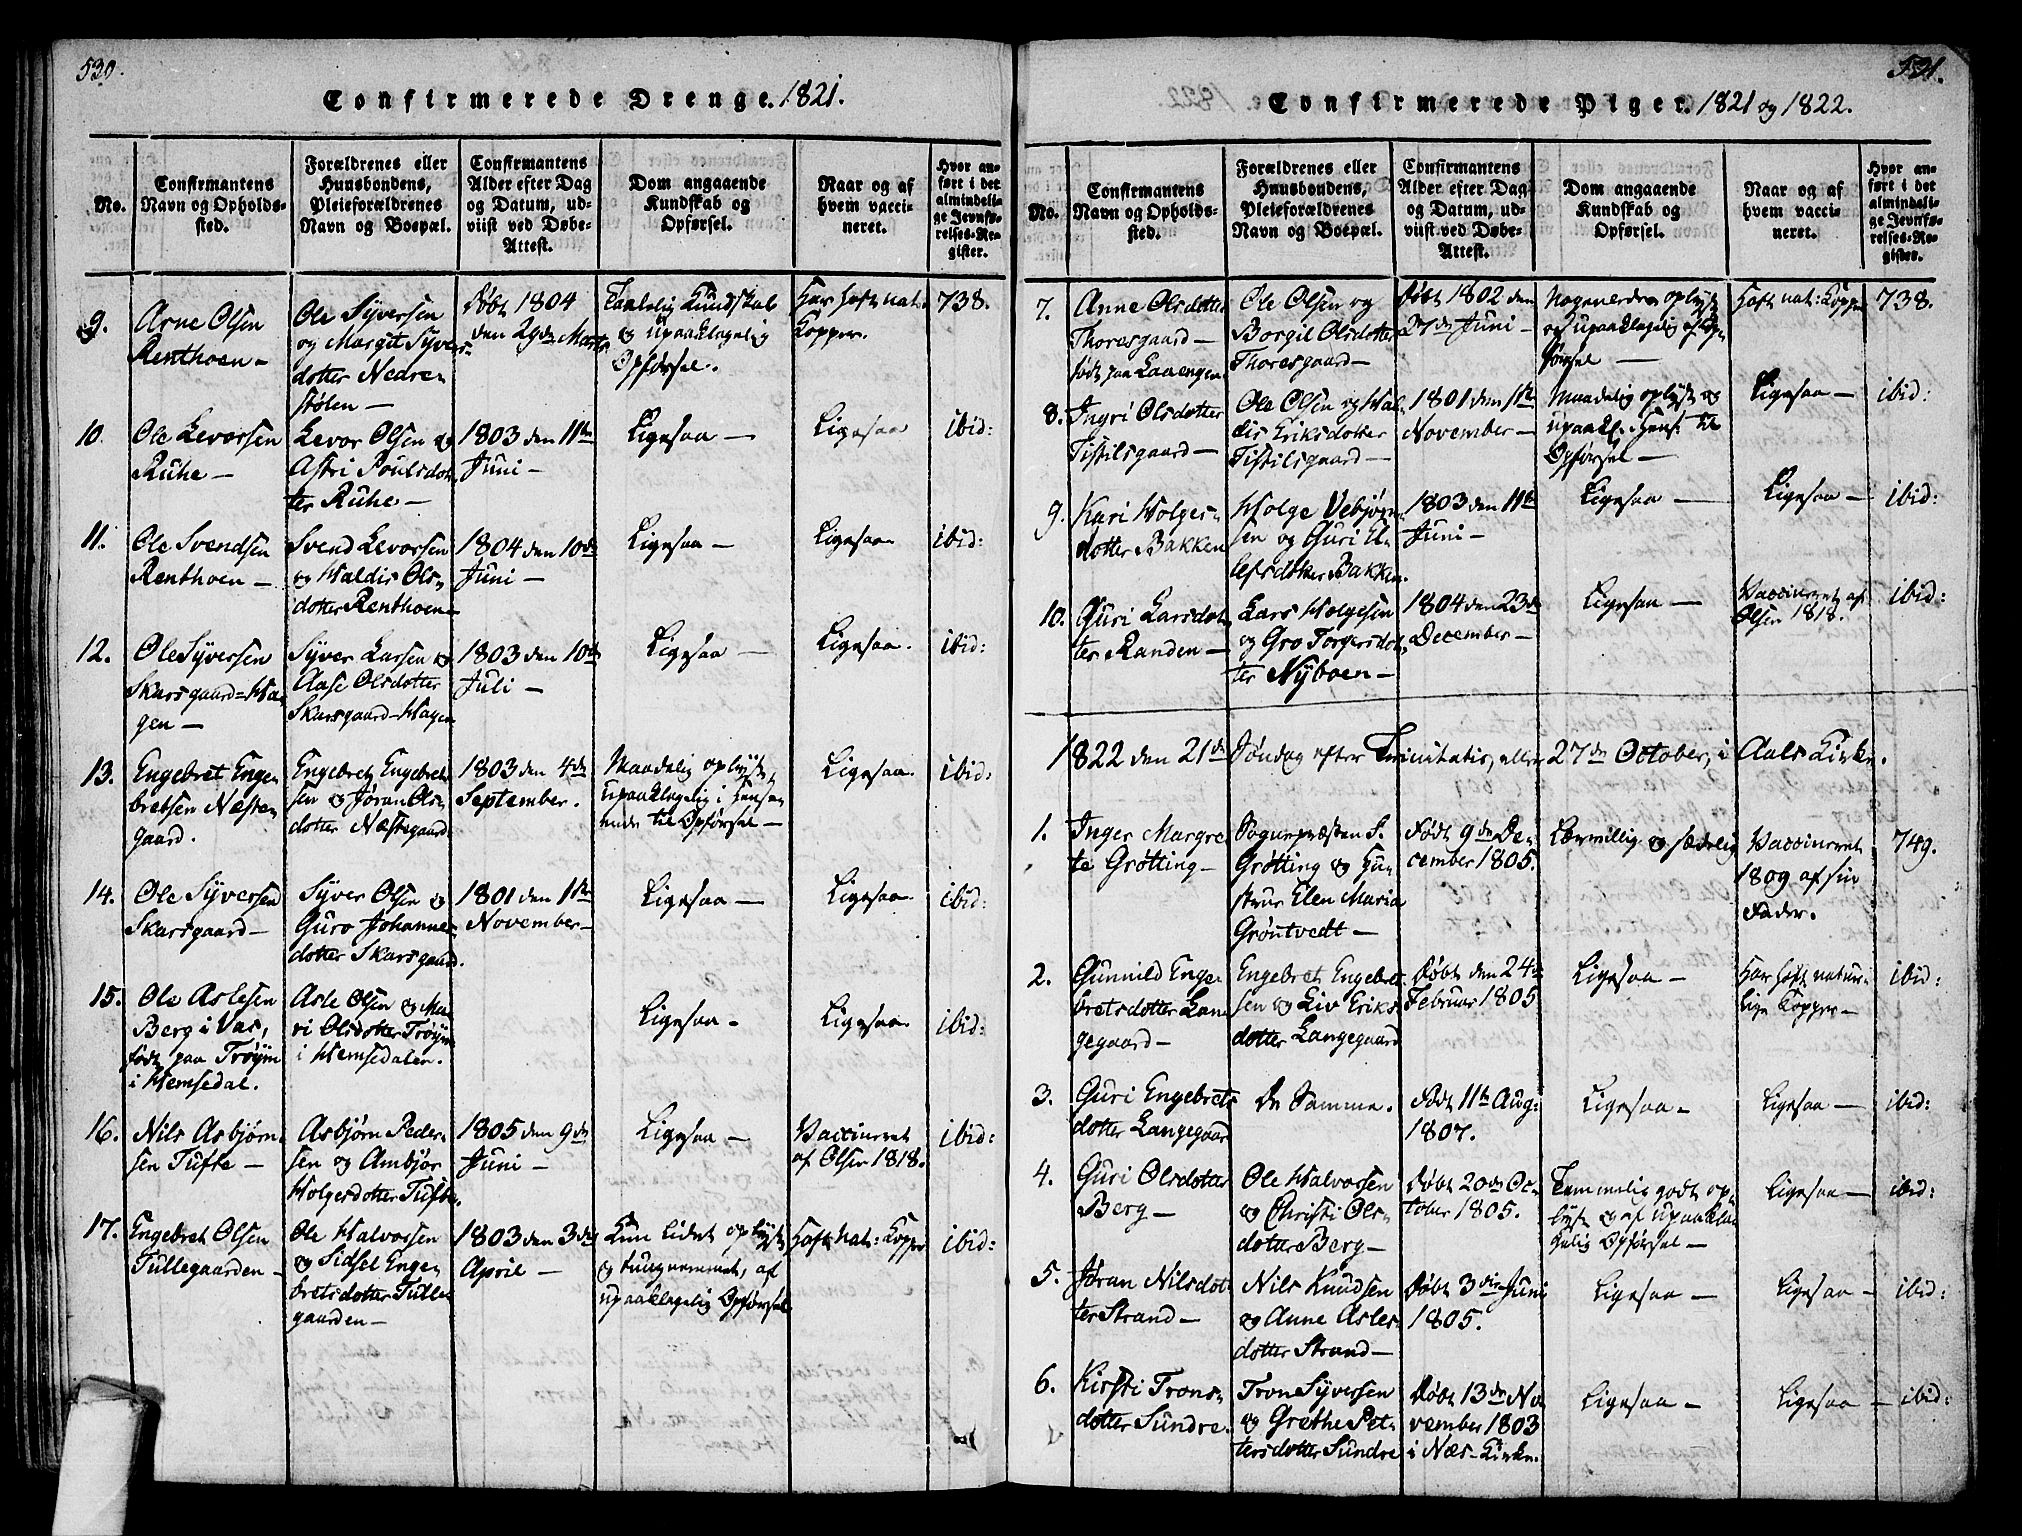 530.
Confirmerede Drenge. 1821.
No.
Confirmantens
Navn og Opholds-
sted.
Forældrenes eller
Huusbondens,
Pleieforældrenes
Navn og Boepæl.
Confirmantens
Alder efter Dag
og Datum, ud-
viist ved Døbe-
Attest.
Dom angaaende
Kundskab og
Opførsel.
Naar og af
hvem vacci-
neret.
Hvor an-
ført i det
almindeli-
ge Jevnfø-
relses-Re-
gister.
9.
Arne Olsen
Renthoen —
Ole Syversen
og Margit Syvers-
dotter Nedre-
stølen —
Døbt 1804
den 29de Marts
Taalelig Kundskab
og upaaklagelig
Opførsel.
Har haft nat:
Kopper.
738.
10.
Ole Levorsen
Ruhe —
Levor Olsen og
Astri Poulsdot-
ter Ruhe —
1803 den 11te
Juni —
Ligesaa —
Ligesaa
ibid:
11.
Ole Svendsen
Renthoen —
Svend Levorsen
og Haldis Ols-
dotter Renthoen —
1804 den 10de
Juni —
Ligesaa —
Ligesaa
ibid:
12.
Ole Syversen
Skarsgaard-Ha-
gen —
Syver Larsen og
Aase Olsdotter
Skarsgaard-Hagen
1803 den 10de
Juli —
Ligesaa —
Ligesaa.
ibid:
13.
Engebret Enge-
bretsen Næste-
gaard.
Engebret Engebret-
sen og Jøran Ols-
dotter Næstegaard
1803 den 4de
September.
Maadelig oplyst,
upaaklagelig i Hensee-
ende til Opførsel —
Ligesaa.
ibid:
14.
Ole Syversen
Skarsgaard —
Syver Olsen og
Guro Johannes-
dotter Skarsgaard.
1801 den 11te
November —
Ligesaa —
Ligesaa
ibid:
15.
Ole Aslesen
Berg i Vas,
født paa Trøym
i Hemsedal.
Asle Olsen og Ma-
ri Olsdotter Trøym
i Hemsedalen.
Ligesaa —
Ligesaa
ibid:
16.
Nils Asbjørn-
sen Tufte —
Asbjørn Peder-
sen og Ambjør
Holgersdotter Tufte.
1805 den 9de
Juni —
Ligesaa —
Vaccineret
af Olsen 1818.
ibid:
17.
Engebret Olsen
Tullegaarden —
Ole Halvorsen
og Sidsel Enge-
bretsdotter Tulle-
gaarden —
1803 den 3die
April —
Kun lidet oplyst
og tungnemmet, af
upaaklagelig Opførsel
Haft nat: Kopper
ibid:
531.
Confirmerede Piger. 1821 og 1822.
No.
Confirmantens
Navn og Opholds-
sted.
Forældrenes eller
Huusbondens,
Pleieforældrenes
Navn og Boepæl.
Confirmantens
Alder efter Dag
og Datum, ud-
viist ved Døbe-
Attest.
Dom angaaende
Kundskab og
Opførsel.
Naar og af
hvem vacci-
neret.
Hvor an-
ført i det
almindeli-
ge Jevnfø-
relses-Re-
gister.
7.
Anne Olsdotter
Thoresgaard —
født paa Laaengen
Ole Olsen og
Borgil Olsdotter
Thoresgaard —
Døbt 1802 den
27de Juni —
Nogenledes oplyst
og upaaklagelig af Op-
førsel —
Haft nat: Kopper
738.
8.
Ingri Olsdotter
Tistilsgaard —
Ole Olsen og Hal-
dis Eriksdotter
Tistilsgaard —
1801 den 11te
November —
Maadelig oplyst og
upaakl. i Hens. til
Opførsel —
Ligesaa —
ibid:
9.
Kari Holges-
dotter Bakken
Holge Vebjørn-
sen og Guri El-
lefsdotter Bakken.
1803 den 11te
Juni —
Ligesaa —
Ligesaa —
ibid:
10.
Guri Larsdot-
ter Randen —
Lars Holgesen
og Gro Torgersdot-
ter Nyboen —
1804 den 23de
December —
Ligesaa —
Vaccineret af
Olsen 1818.
ibid:
1822 den 21de Søndag efter Trinitatis, eller 27de October, i Aals Kirke.
1.
Inger Margre-
te Grøtting —
Sognepræsten S.
Grøtting og Hu-
strue Elen Maria
Grøntvedt —
Født 9de De-
cember 1805.
Lærvillig og sædelig
Vaccineret
1809 af sin
Fader.
749.
2.
Gunnild Enge-
bretsdotter Lan-
gegaard —
Engebret Engebret-
sen og Liv Eriks-
dotter Langegaard
Døbt den 24de
Februar 1805
Ligesaa —
Har haft natur-
lige Kopper —
ibid:
3.
Guri Engebrets-
dotter Langegaar
De Samme.
Født 11te Aug:
1807.
Ligesaa —
Ligesaa —
ibid:
4.
Guri Olsdotter
Berg —
Ole Halvorsen
og Christi Ols-
dotter Berg —
Døbt 20de Oc-
tober 1805.
Temmelig godt op-
lyst og af upaakla-
gelig Opførsel —
Ligesaa —
ibid:
5.
Jøran Nilsdot-
ter Strand —
Nils Knudsen
og Anne Asles-
dotter Strand —
Døbt 3die Juni
1805.
Ligesaa —
Ligesaa —
ibid:
6.
Kirsti Trons-
dotter Sundre.
Tron Syversen
og Grethe Pet-
tersdotter Sundre
Døbt 13de No-
vember 1803
i Næs-Kirke.
Ligesaa —
Ligesaa —
ibid: